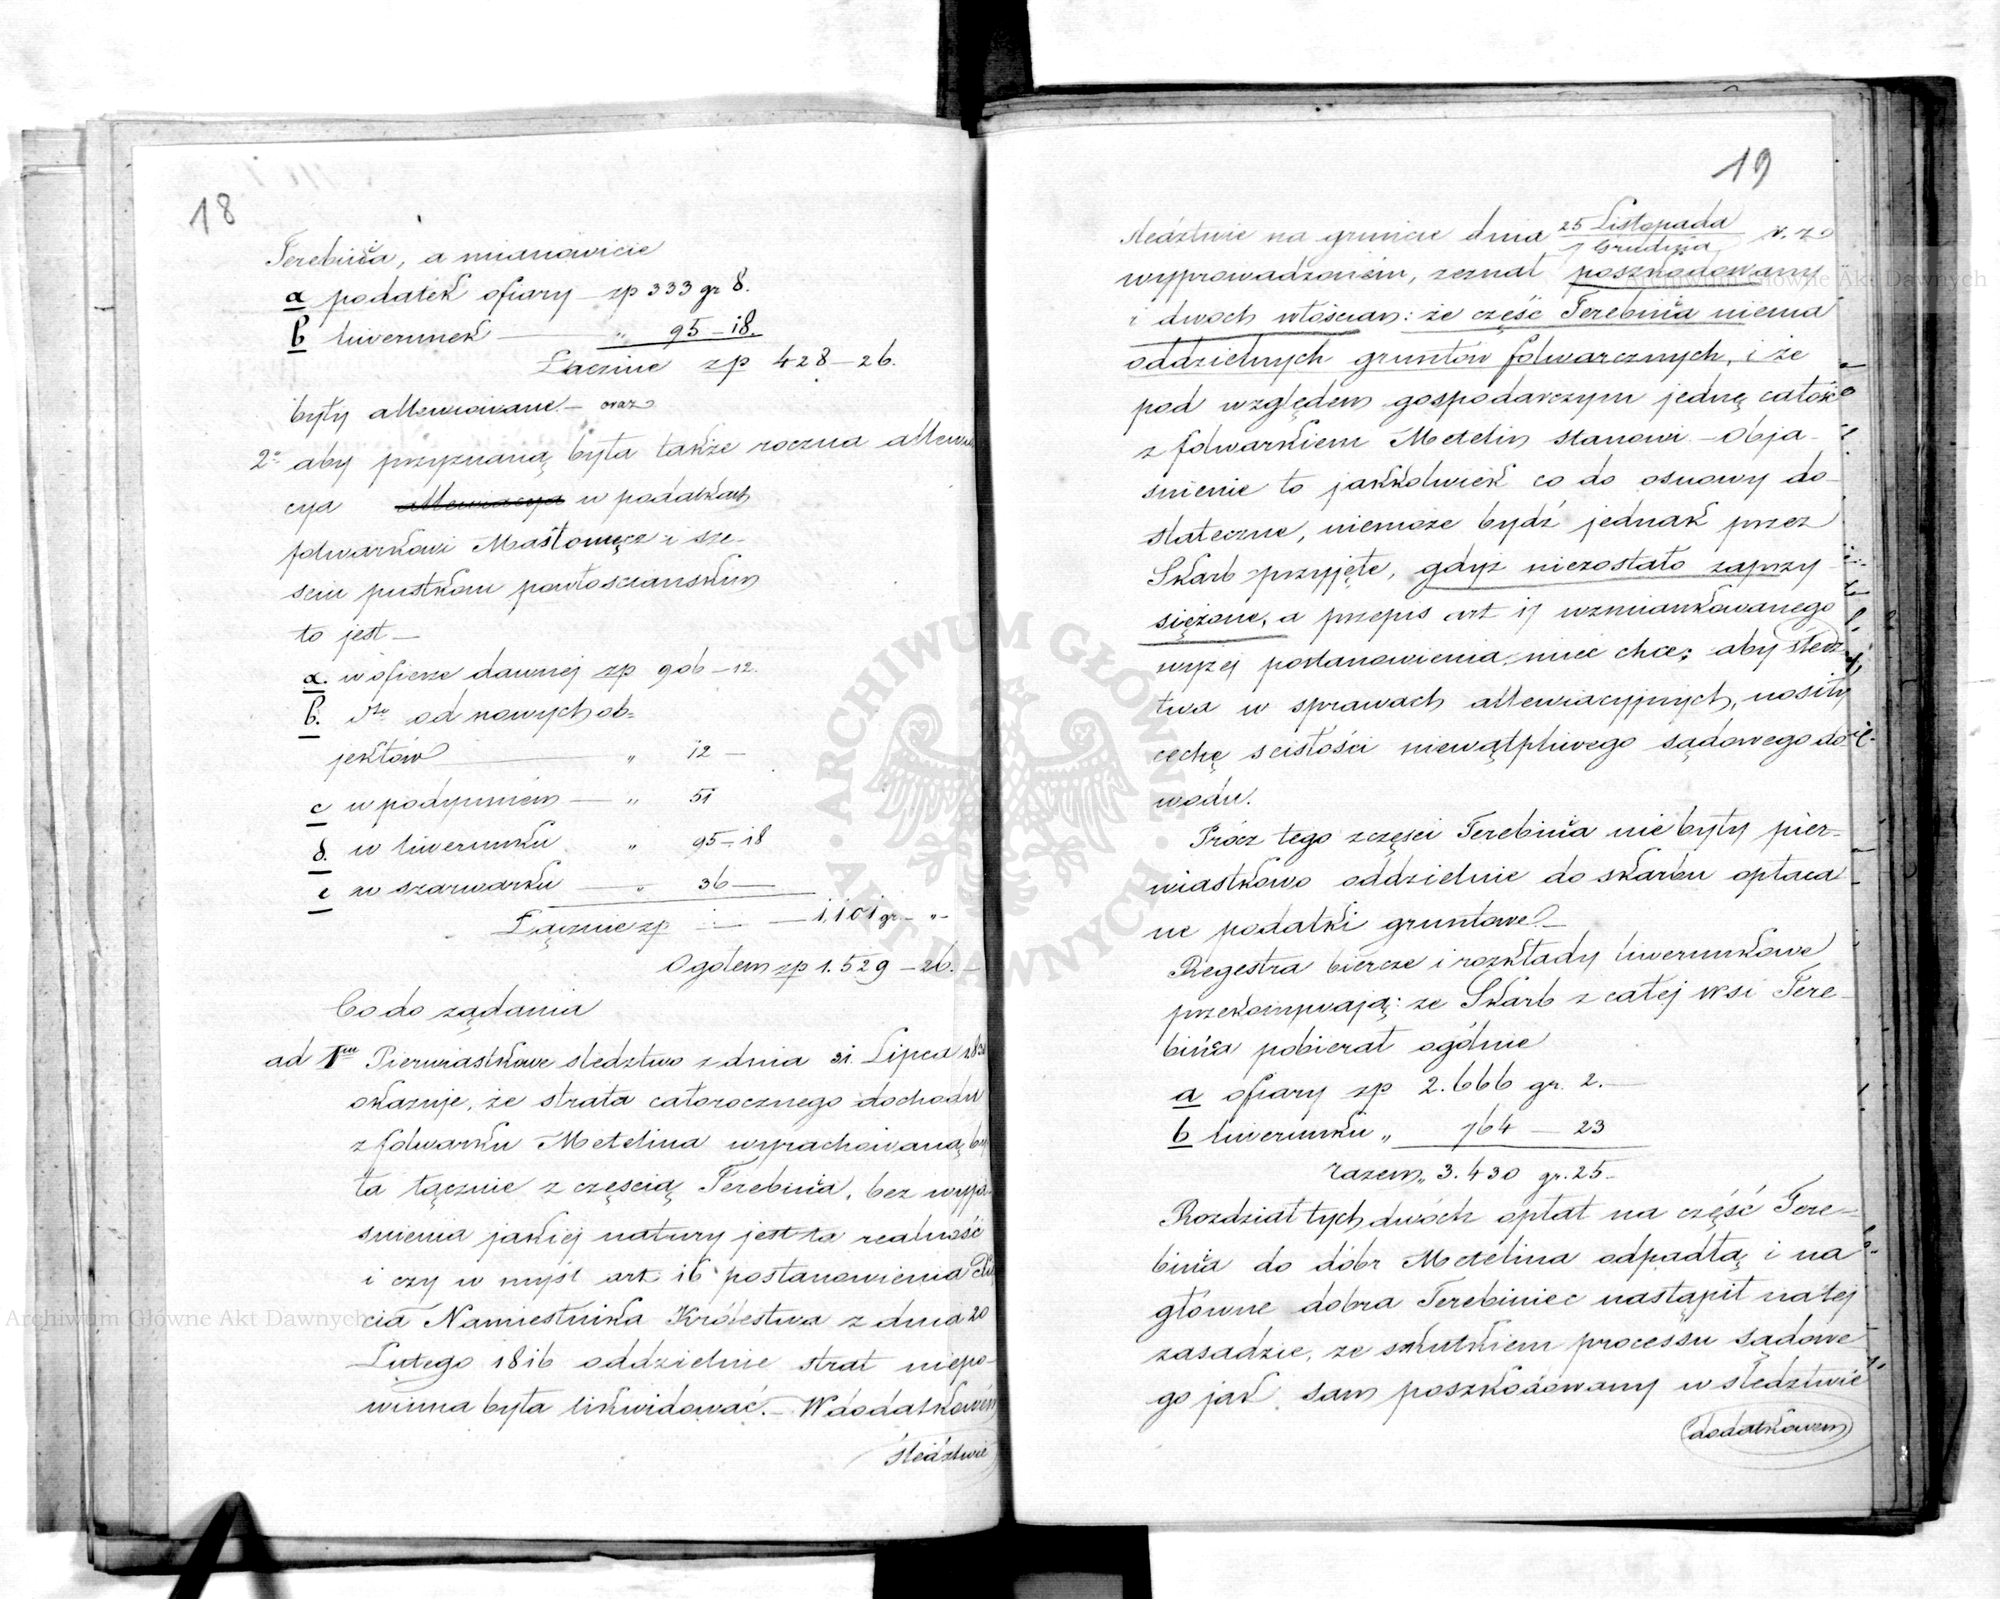 18
Terebinia, a mianowicie
a podatek ofiary – zp 333 gr 8.
b liwerunek — „ 95 – 18.
Łącznie zp 428 – 26.
były allewiowane – oraz
2o aby przyznaną była także roczna allewia
cya allewiacya w podatkach
folwarkowi Masłomęcz i sze-
ściu pustkom powłosciańskim
to jest —
a. w ofierze dawnej zp 906 – 12.
b. dto od nowych ob-
jektów — „ 12 —
c w podymnem — „ 51
d. w liwerunku „ 95 – 18
e w szarwarku — „ 36 —
Łącznie zp — 1.101 gr – „ –
Ogółem zp 1.529 – 26. –
Co do żądania
ad 1um Pierwiastkowe śledztwo z dnia 31 Lipca
okazuje, że strata całorocznego dochodu
z folwarku Metelina wyrachowaną by
ła łącznie z częścią Terebinia, bez wyja-
śnienia jakiej natury jest ta realność
i czy w myśl art 16 postanowienia Xię
cia Namiestnika Królestwa z dnia 20
Lutego 1816 oddzielnie strat niepo-
winna była likwidować. – W dodatkowem
śledztwie
19
śledztwie na gruncie dnia 25 Listopada / 7 Grudnia r. z.
wyprowadzoném, zeznał poszkodowany
i dwoch włościan: że część Terebinia niema
oddzielnych gruntów folwarcznych, i że
pod względem gospodarczym jednę całość
z folwarkiem Metelin stanowi – Obja-
śnienie to jakkolwiek co do osnowy do-
stateczne, niemoże bydź jednak przez
Skarb przyjęte, gdyż niezostało zaprzy
siężone, a przepis art 17 wzmiankowanego
wyżej postanowienia mieć chce; aby śledz
twa w sprawach allewiacyjnych, nosiły
cechę scisłości niewątpliwego sądowego do
wodu.
Prócz tego z części Terebinia nie były pier-
wiastkowo oddzielnie do skarbu opłaca
ne podatki gruntowe. –
Regestra biercze i rozkłady liwerunkowe
przekonywają: że Skarb z całej wsi Tere-
binia pobierał ogólnie
a ofiary zp 2.666 gr. 2. —
b liwerunku „ 764 — 23
razem „ 3.430 gr. 25 –
Rozdział tych dwóch opłat na część Tere-
binia do dóbr Metelina odpadłą i na
główne dobra Terebiniec nastąpił na tej
zasadzie, że skutkiem processu sądowe
go jak sam poszkodowany w śledztwie
dodatkowem
ARCHIWUM GŁÓWNE AKT DAWNYCH
Archiwum Główne Akt Dawnych
Archiwum Główne Akt Dawnych